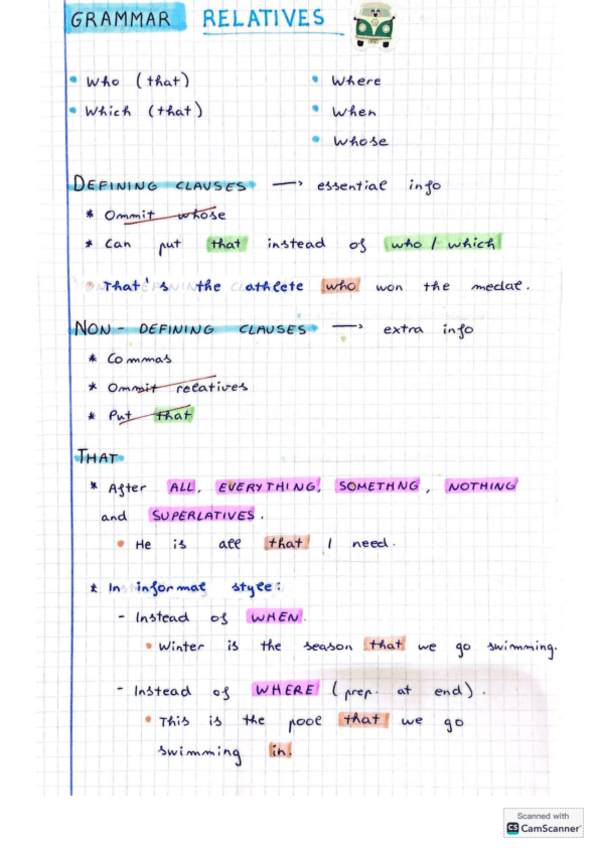 GRAMMAR RELATIVES
• Who (that)
• Which (that)
• Where
• When
• Whose
DEFINING CLAUSES → essential info
* Ommit whose
* Can put that instead of who / which
• That's the athlete who won the medal.
NON-DEFINING CLAUSES → extra info
* Commas
* Ommit relatives
* Put that
THAT
* After ALL, EVERYTHING, SOMETHNG, NOTHING
and SUPERLATIVES.
• He is all that I need.
* In informal style:
- Instead of WHEN.
• Winter is the season that we go swimming.
- Instead of WHERE (prep. at end).
• This is the pool that we go
swimming in.
Scanned with
CS CamScanner